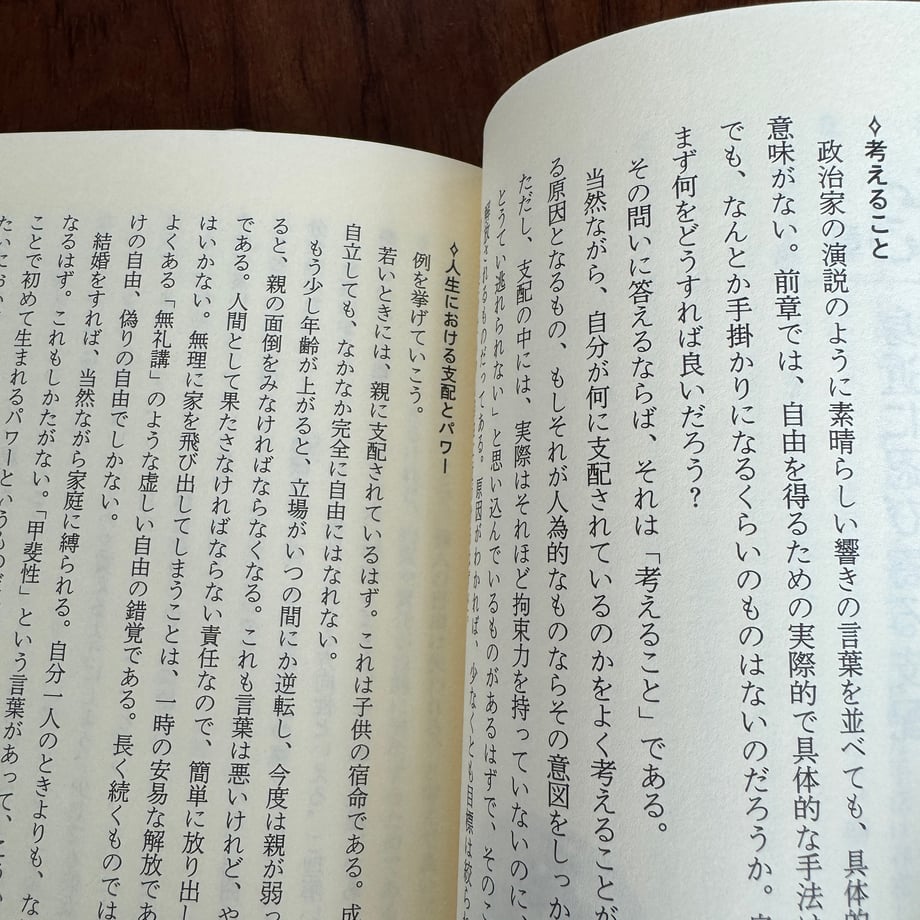 ✧考えること
政治家の演説のように素晴らしい響きの言葉を並べても、具体的
意味がない。前章では、自由を得るための実際的で具体的な手法
でも、なんとか手掛かりになるくらいのものはないのだろうか。
まず何をどうすれば良いだろう?
その問いに答えるならば、それは「考えること」である。
当然ながら、自分が何に支配されているのかをよく考えることが
る原因となるもの、もしそれが人為的なものならその意図をしっか
ただし、支配の中には、実際はそれほど拘束力を持っていないのに、
とうてい逃れられない」と思い込んでいるものがあるはずで、そのこ
である。原因がわかれば、少なくとも目標は絞られ
✧人生における支配とパワー
例を挙げていこう。
若いときには、親に支配されているはず。これは子供の宿命である。成
自立しても、なかなか完全に自由にはなれない。
もう少し年齢が上がると、立場がいつの間にか逆転し、今度は親が弱っ
ると、親の面倒をみなければならなくなる。これも言葉は悪いけれど、や
である。人間として果たさなければならない責任なので、簡単に放り出し
はいかない。無理に家を飛び出してしまうことは、一時の安易な解放であ
よくある「無礼講」のような虚しい自由の錯覚である。長く続くものでは
けの自由、偽りの自由でしかない。
結婚をすれば、当然ながら家庭に縛られる。自分一人のときよりも、な
なるはず。これもしかたがない。「甲斐性」という言葉があって、
ことで初めて生まれるパワーというものだ